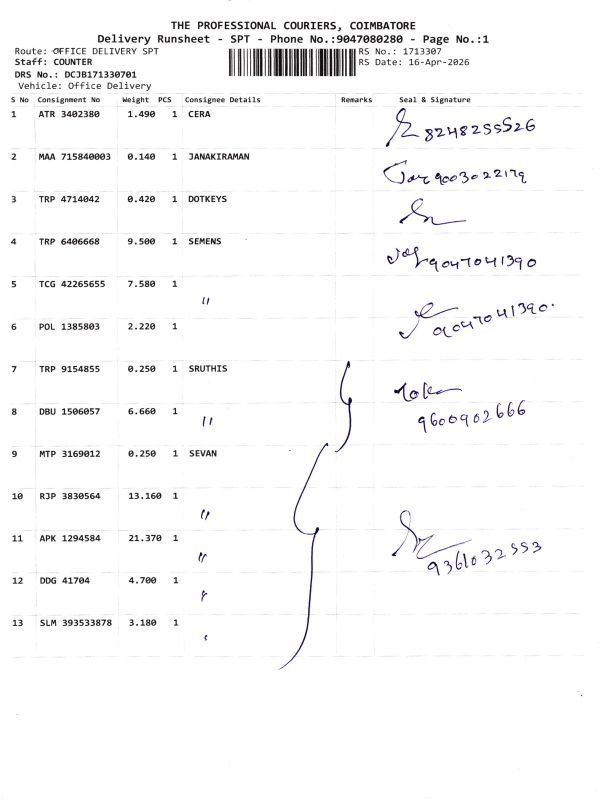 THE PROFESSIONAL COURIERS, COIMBATORE
Delivery Runsheet - SPT - Phone No.:9047080280 - Page No.:1
Route: OFFICE DELIVERY SPT RS No.: 1713307
Staff: COUNTER RS Date: 16-Apr-2026
DRS No.: DCJB171330701
Vehicle: Office Delivery
S No Consignment No Weight PCS Consignee Details Remarks Seal & Signature
1 ATR 3402380 1.490 1 CERA 8248255526
2 MAA 715840003 0.140 1 JANAKIRAMAN 9003022179
3 TRP 4714042 0.420 1 DOTKEYS
4 TRP 6406668 9.500 1 SEMENS 9047041390
5 TCG 42265655 7.580 1 "
6 POL 1385803 2.220 1 9047041390.
7 TRP 9154855 0.250 1 SRUTHIS
8 DBU 1506057 6.660 1 " 9600902666
9 MTP 3169012 0.250 1 SEVAN
10 RJP 3830564 13.160 1 "
11 APK 1294584 21.370 1 " 9361032553
12 DDG 41704 4.700 1 "
13 SLM 393533878 3.180 1